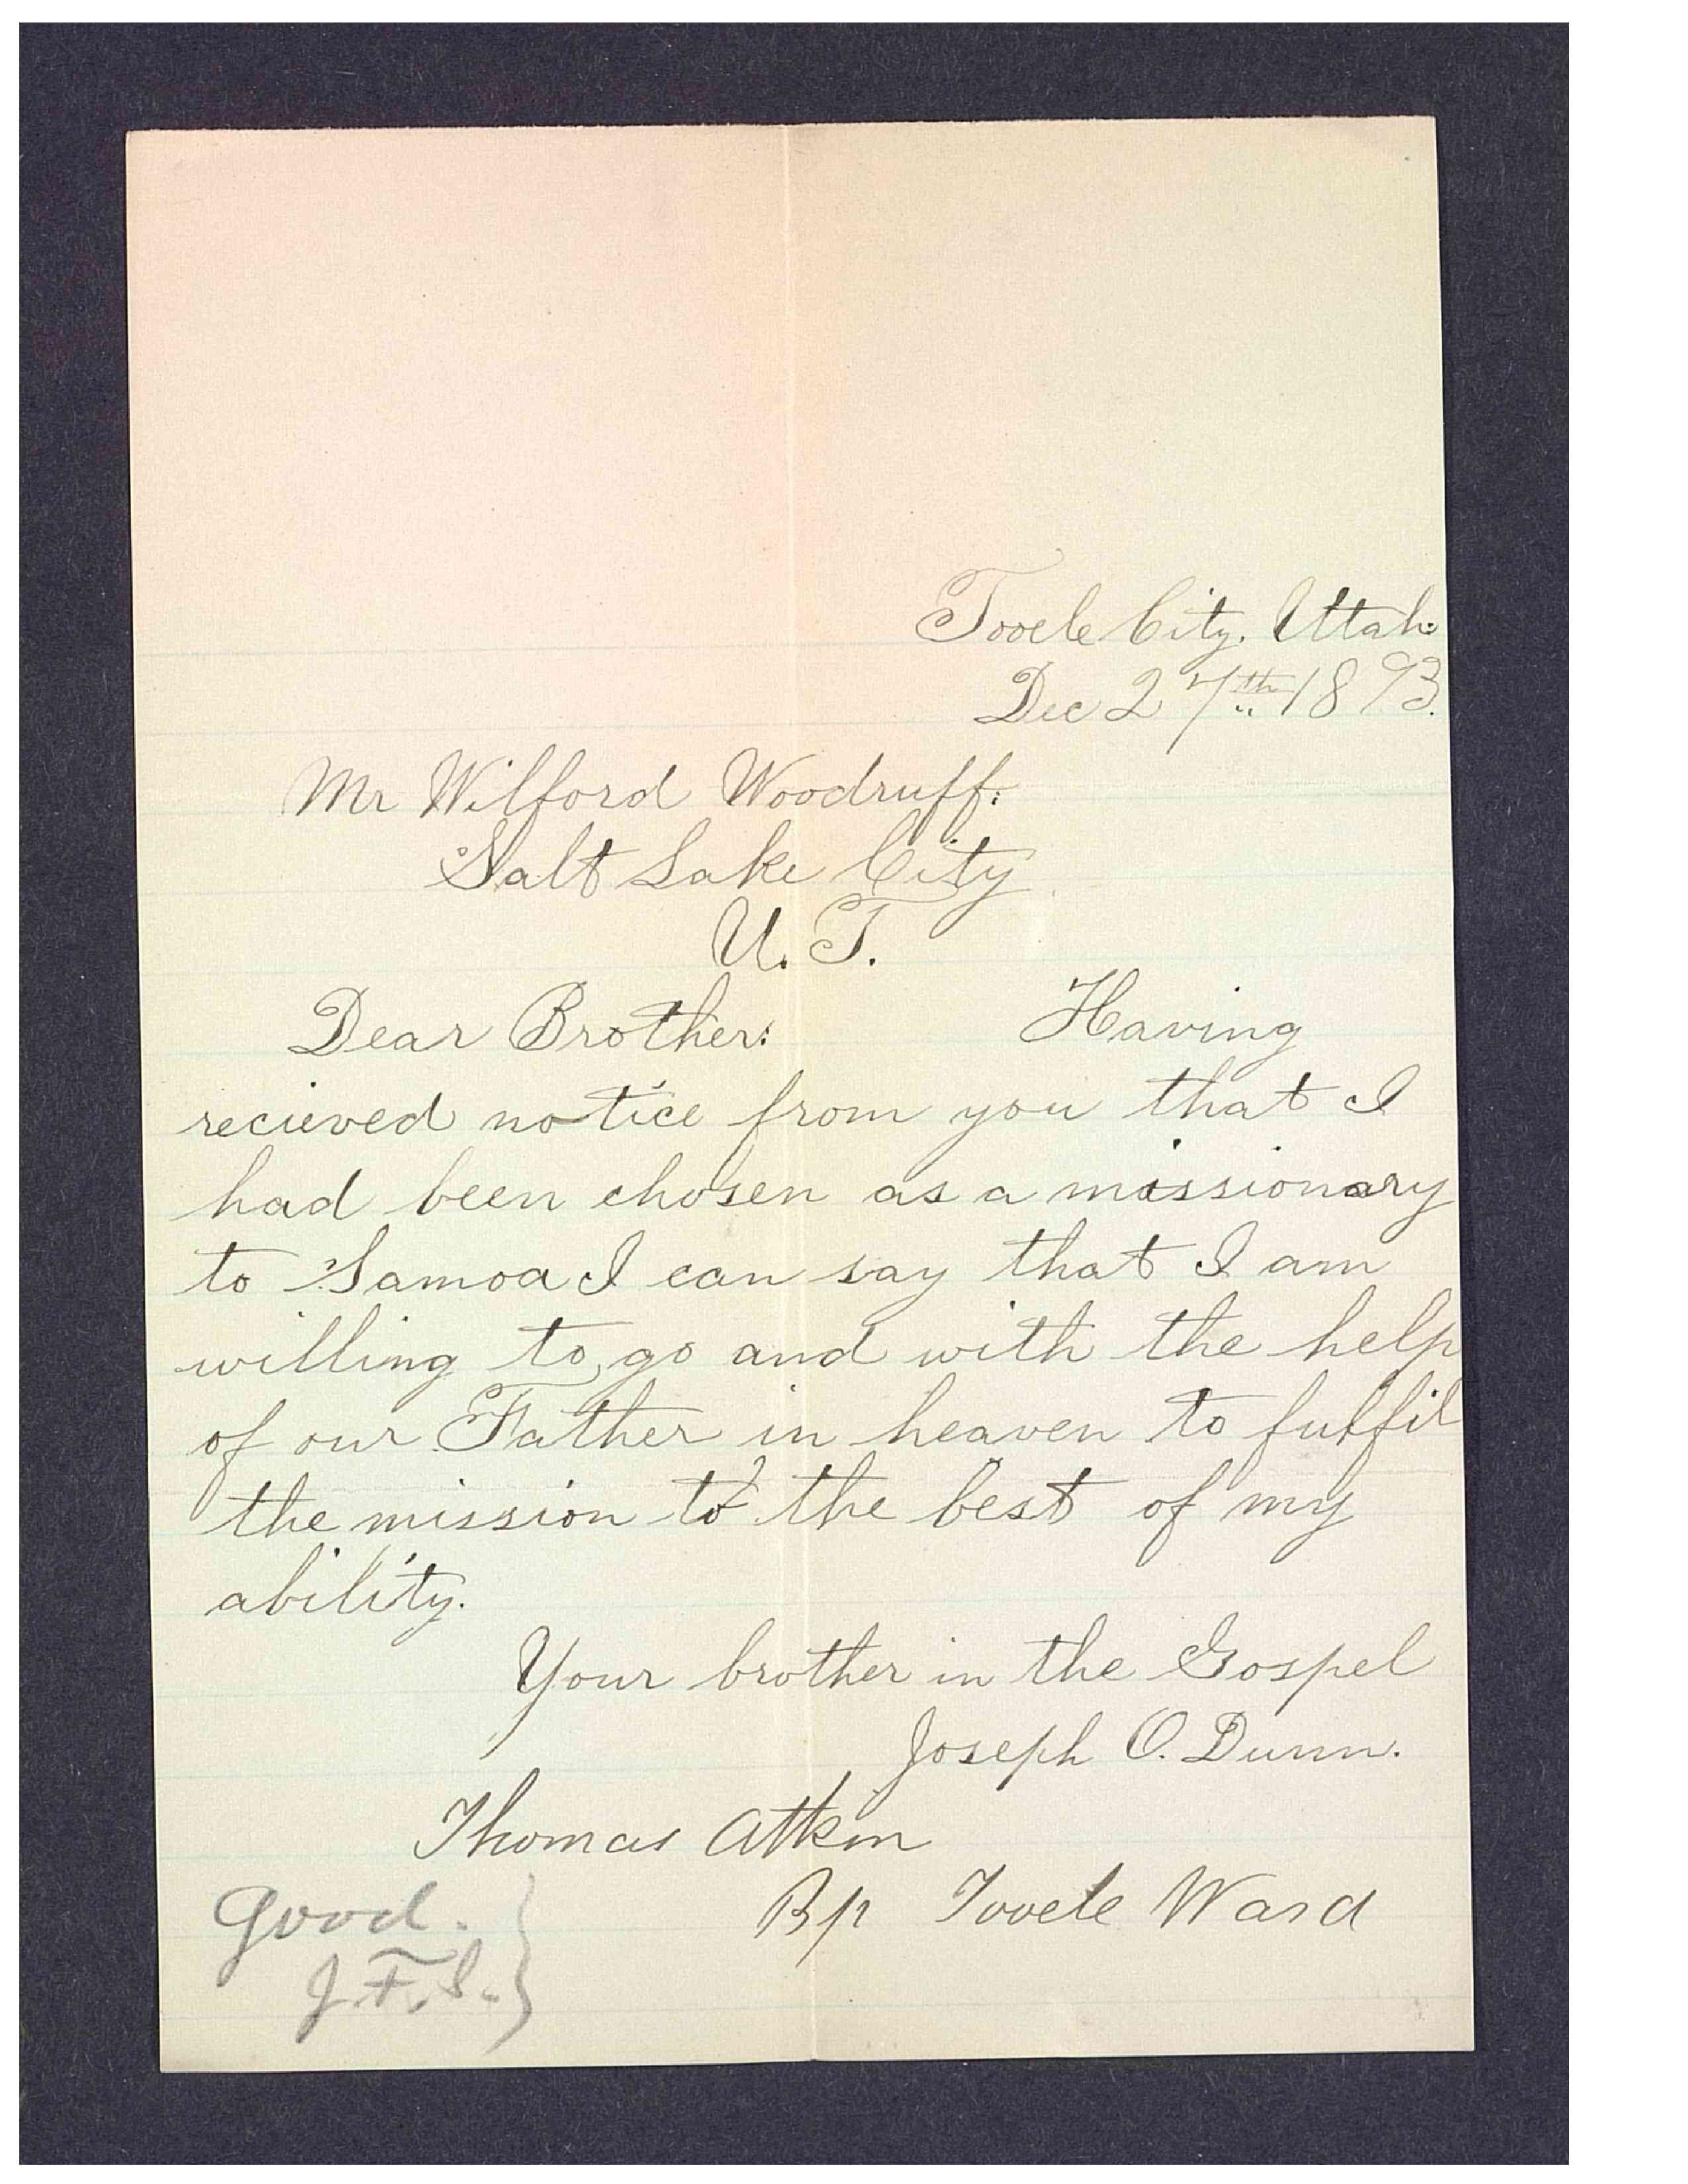 Tooele City. Utah.
Dec 27th 1893.
Mr Wilford Woodruff:
Salt Lake City
U. T.
Dear Brother: Having
recieved notice from you that I
had been chosen as a missionary
to Samoa I can say that I am
willing to go and with the help
of our Father in heaven to fulfil
the mission to the best of my
ability.
Your brother in the Gospel
Joseph O. Dunn.
Thomas Atkin
Bp Tooele Ward
Good.
J. F. S.